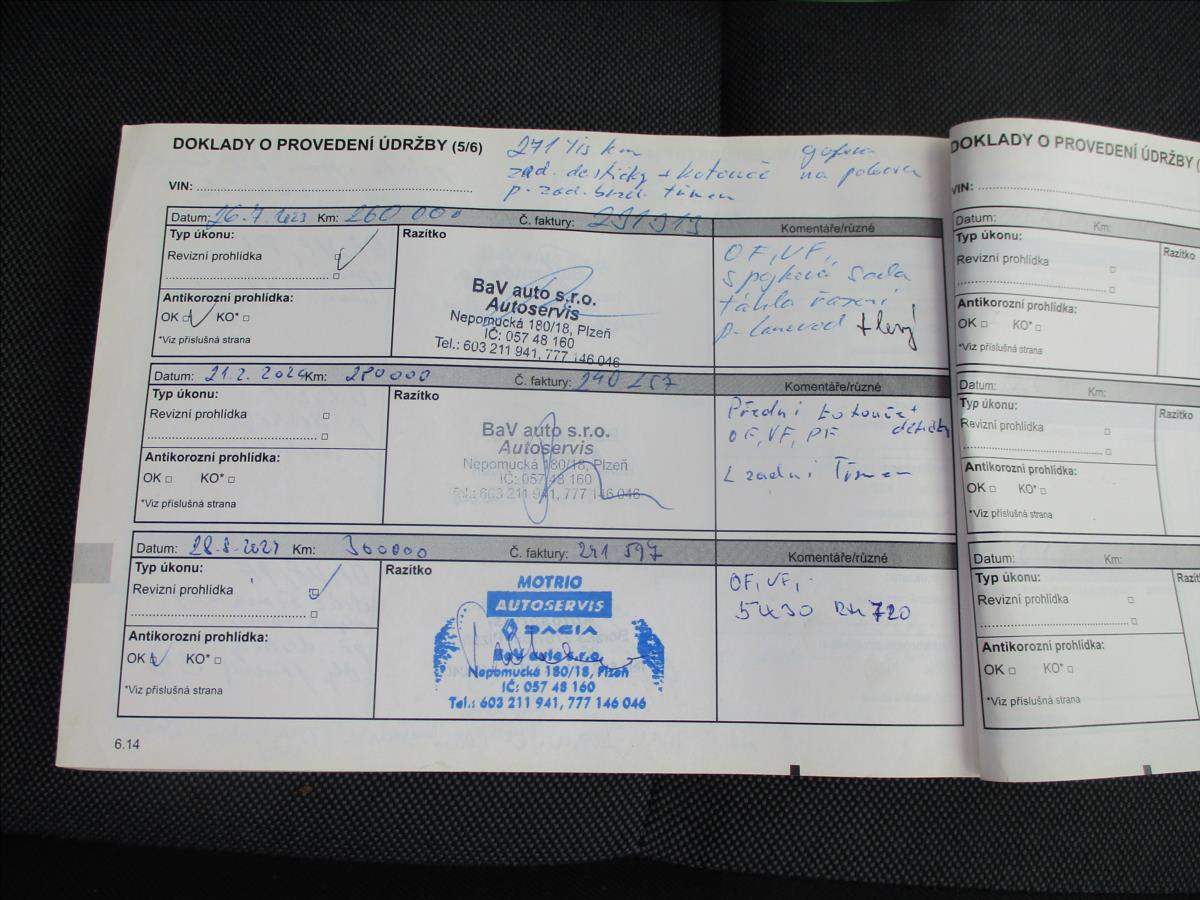 DOKLADY O PROVEDENÍ ÚDRŽBY (5/6)
271 tis km
zad. destičky + kotouče na
p. zad. brzd. třmen
VIN:
Datum: 26.7 2023 Km: 260 000 Č. faktury: 231313 Komentáře/různé
Typ úkonu:
Revizní prohlídka
Antikorozní prohlídka:
OK KO*
*Viz příslušná strana
Razítko
BaV auto s.r.o.
Autoservis
Nepomucká 180/18, Plzeň
IČ: 057 48 160
Tel.: 603 211 941, 777 146 046
OF, VF,
spojková sada
táhla řazení
p. + levý
Datum: 21.2. 2024 Km: 280000 Č. faktury: 240 257 Komentáře/různé
Typ úkonu:
Revizní prohlídka
Antikorozní prohlídka:
OK KO*
*Viz příslušná strana
Razítko
BaV auto s.r.o.
Autoservis
Nepomucká 180/18, Plzeň
IČ: 057 48 160
Tel.: 603 211 941, 777 146 046
Přední kotouče +
OF, VF, PF destičky
L zadní Třmen
Datum: 28.8.2024 Km: 300000 Č. faktury: 241 597 Komentáře/různé
Typ úkonu:
Revizní prohlídka
Antikorozní prohlídka:
OK KO*
*Viz příslušná strana
Razítko
MOTRIO
AUTOSERVIS
DACIA
BaV auto s.r.o.
Nepomucká 180/18, Plzeň
IČ: 057 48 160
Tel.: 603 211 941, 777 146 046
OF, VF,
5W30 RN 720
6.14
DOKLADY O PROVEDENÍ ÚDRŽBY (
VIN:
Datum: Km:
Typ úkonu:
Revizní prohlídka
Antikorozní prohlídka:
OK KO*
*Viz příslušná strana
Razítko
Datum: Km:
Typ úkonu:
Revizní prohlídka
Antikorozní prohlídka:
OK KO*
*Viz příslušná strana
Razítko
Datum: Km:
Typ úkonu:
Revizní prohlídka
Antikorozní prohlídka:
OK KO*
*Viz příslušná strana
Razít